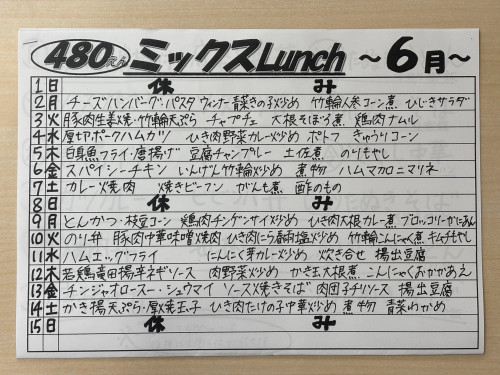 480えん ミックスLunch 〜6月〜
1 日 休 み
2 月 チーズハンバーグ・パスタ ウィンナー青菜きの子炒め 竹輪人参コーン煮 ひじきサラダ
3 火 豚肉生姜焼・竹輪天ぷら チャプチェ 大根そぼろ煮 鶏肉ナムル
4 水 厚切ポークハムカツ ひき肉野菜カレー炒め ポトフ きゅうりコーン
5 木 白身魚フライ・唐揚げ 豆腐チャンプルー 土佐煮 のりもやし
6 金 スパイシーチキン いんげん竹輪炒め 煮物 ハムマカロニマリネ
7 土 カレー焼肉 焼きビーフン がんも煮 酢のもの
8 日 休 み
9 月 とんかつ・枝豆コーン 鶏肉チンゲンサイ炒め ひき肉大根カレー煮 ブロッコリーかにあん
10 火 のり弁 豚肉中華味噌焼肉 ひき肉にら春雨塩炒め 竹輪こんにゃく煮 キムチもやし
11 水 ハムエッグフライ にんにく芽カレー炒め 炊き合せ 揚出豆腐
12 木 若鶏竜田揚半ネギソース 肉野菜炒め かき玉大根煮 こんにゃくおかかあえ
13 金 チンジャオロースー・シュウマイ ソース焼きそば 肉団子チリソース 揚出豆腐
14 土 かき揚天ぷら・厚焼玉子 ひき肉たけの子中華炒め 煮物 青菜わかめ
15 日 休 み